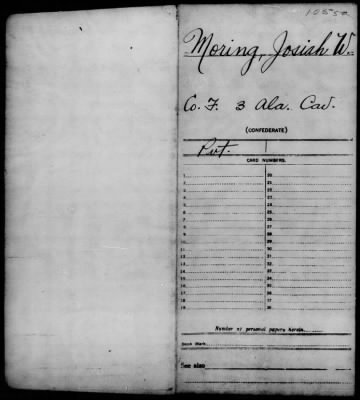 Moring, Josiah W.
Co. F. 3 Ala. Cav.
(CONFEDERATE)
Pvt.
CARD NUMBERS.
1 20
2 21
3 22
4 23
5 24
6 25
7 26
8 27
9 28
10 29
11 30
12 31
13 32
14 33
15 34
16 35
17 36
18 37
19 38
Number of personal papers herein
Book Mark:
See also